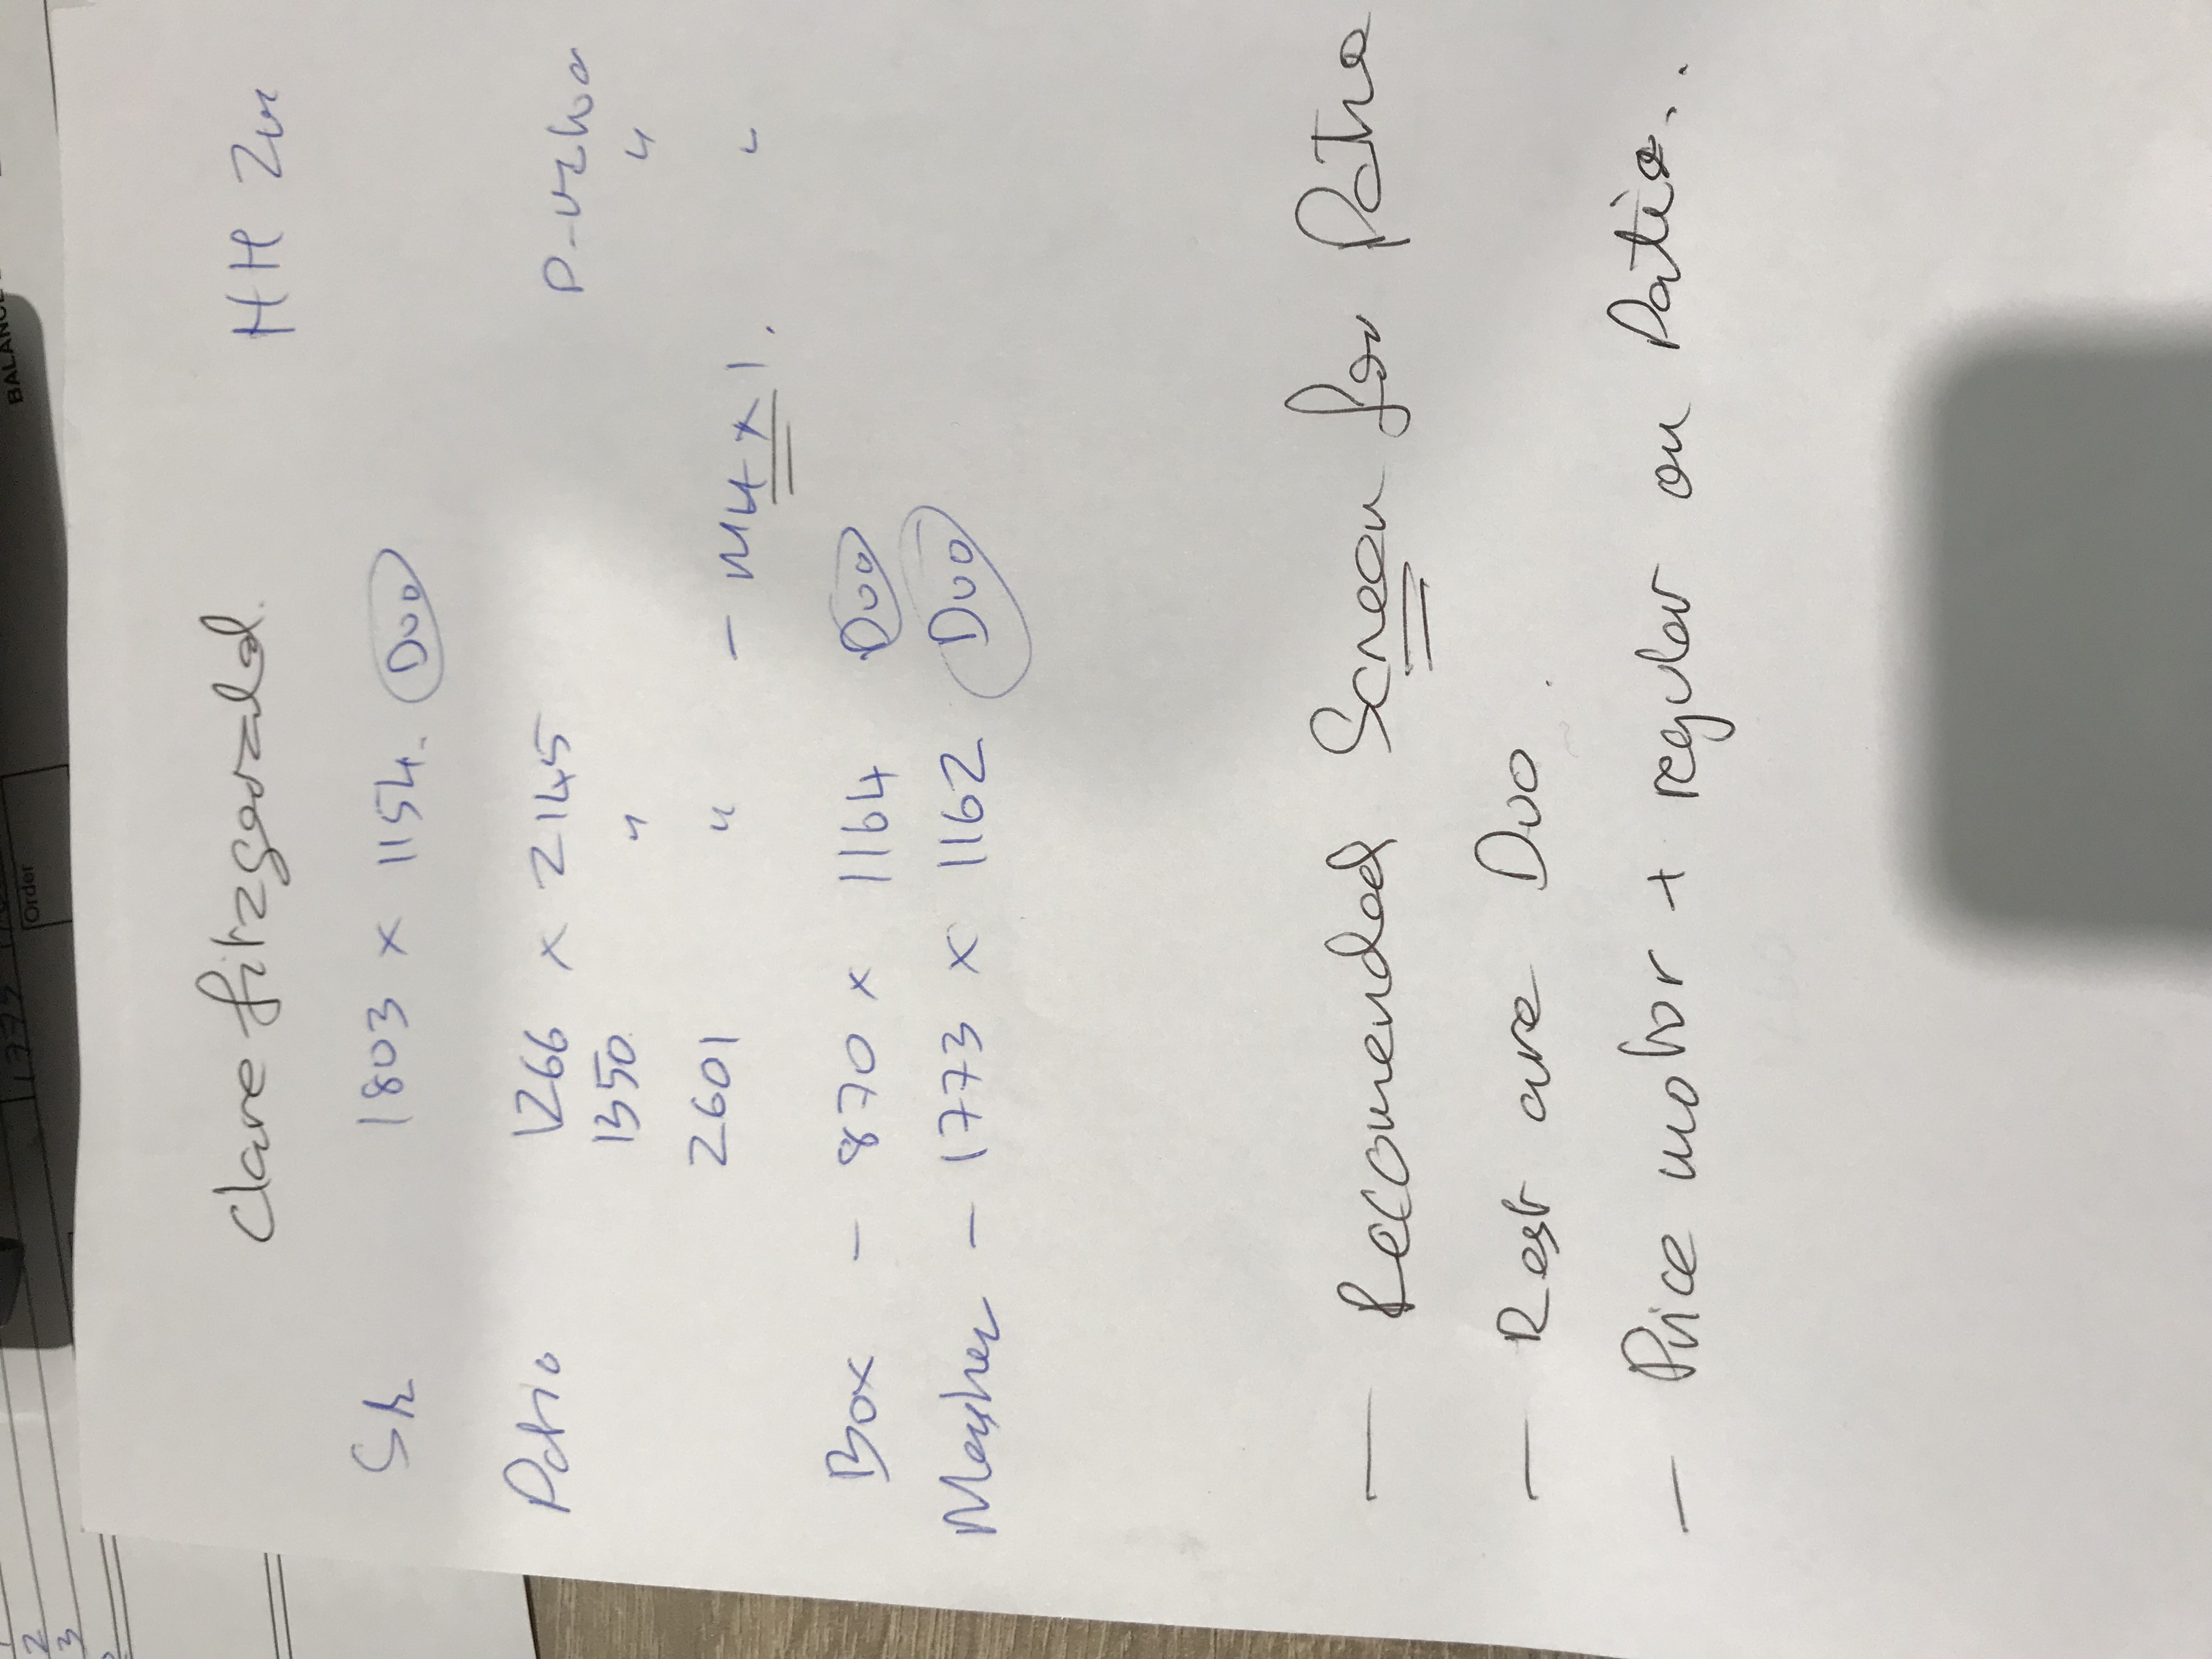 Clare fitzgerald. HH Zn
Sh 1803 x 1154. Duo
Patio 1266 x 2145
1350 "  "
2601 " - M4 x 1. "
Box - 870 x 1164 Duo
Master - 1773 x 1162 Duo
- Reccomended Screen for Patio
- Rest are Duo.
- Price motor + regular on Patio..
BALANCE
Order
1773
2
3